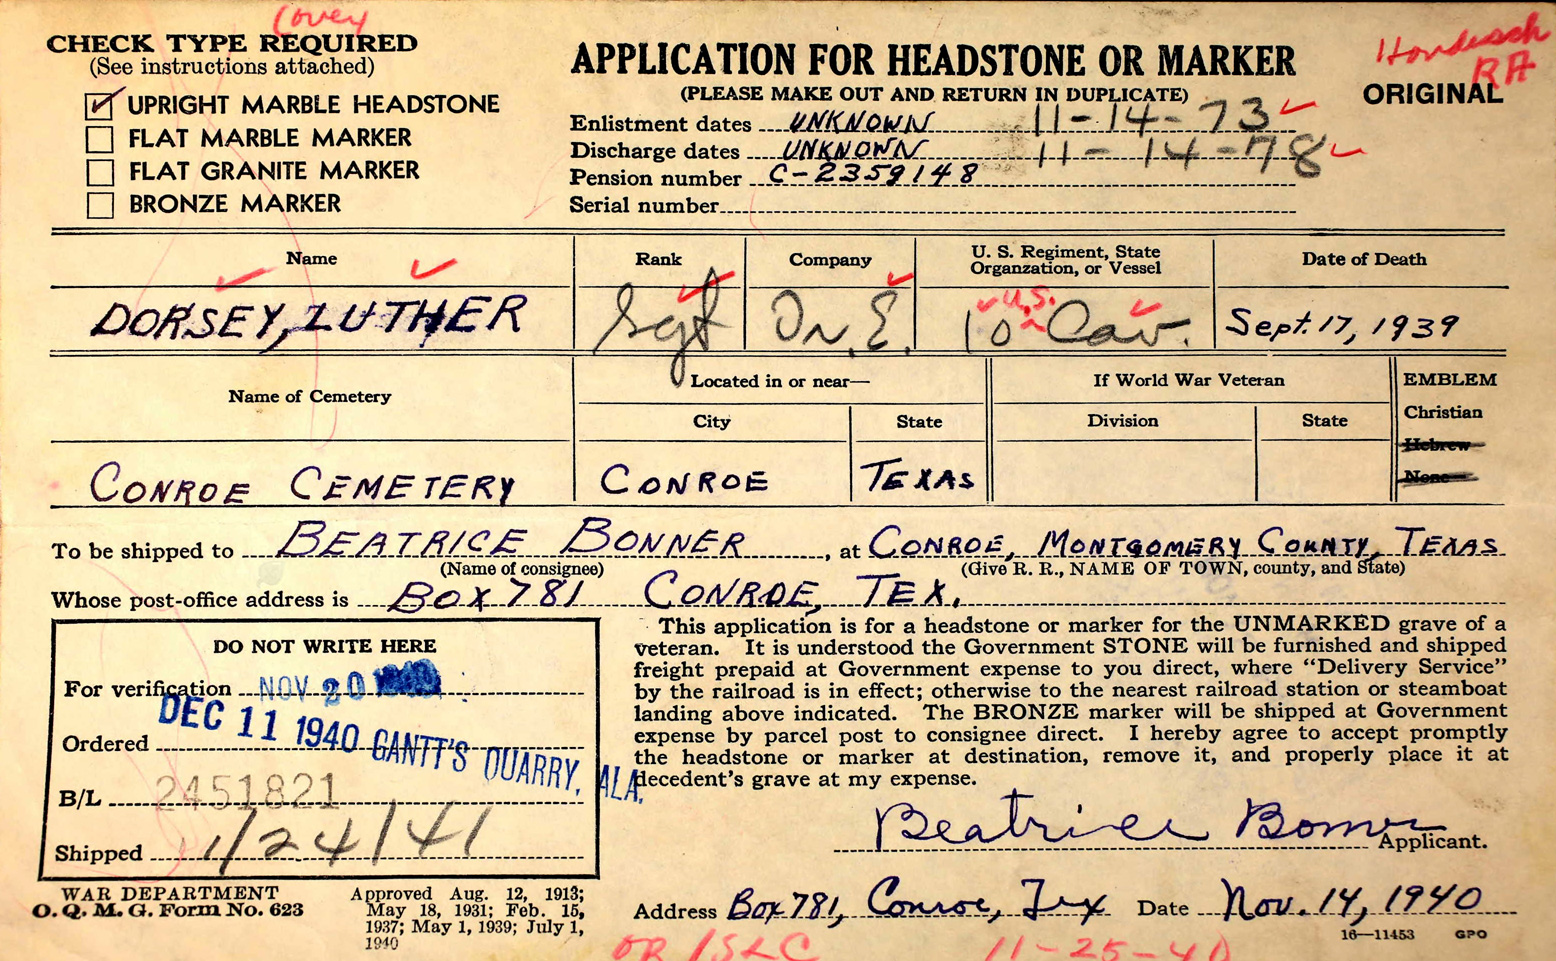 Covey
CHECK TYPE REQUIRED
(See instructions attached)
UPRIGHT MARBLE HEADSTONE
FLAT MARBLE MARKER
FLAT GRANITE MARKER
BRONZE MARKER
APPLICATION FOR HEADSTONE OR MARKER
(PLEASE MAKE OUT AND RETURN IN DUPLICATE)
RA
ORIGINAL
Enlistment dates UNKNOWN 11-14-73
Discharge dates UNKNOWN 11-14-78
Pension number C-2359148
Serial number
Name
Rank
Company
U. S. Regiment, State
Organzation, or Vessel
Date of Death
DORSEY, LUTHER
Sgt
E.
10 U.S. Cav.
Sept. 17, 1939
Name of Cemetery
Located in or near—
If World War Veteran
EMBLEM
City
State
Division
State
Christian
Hebrew
None
CONROE CEMETERY
CONROE
TEXAS
To be shipped to BEATRICE BONNER, at CONROE, MONTGOMERY COUNTY, TEXAS
(Name of consignee) (Give R. R., NAME OF TOWN, county, and State)
Whose post-office address is BOX 781 CONROE, TEX.
DO NOT WRITE HERE
For verification NOV 20
DEC 11 1940 GANTT'S QUARRY, ALA.
Ordered
B/L 2451821
Shipped 1/24/41
This application is for a headstone or marker for the UNMARKED grave of a
veteran. It is understood the Government STONE will be furnished and shipped
freight prepaid at Government expense to you direct, where “Delivery Service”
by the railroad is in effect; otherwise to the nearest railroad station or steamboat
landing above indicated. The BRONZE marker will be shipped at Government
expense by parcel post to consignee direct. I hereby agree to accept promptly
the headstone or marker at destination, remove it, and properly place it at
decedent's grave at my expense.
Beatrice Bonner
Applicant.
Address Box 781, Conroe, Tex Date Nov. 14, 1940
WAR DEPARTMENT
O. Q. M. G. Form No. 623
Approved Aug. 12, 1913;
May 18, 1931; Feb. 15,
1937; May 1, 1939; July 1,
1940
16—11453 GPO
11-25-40